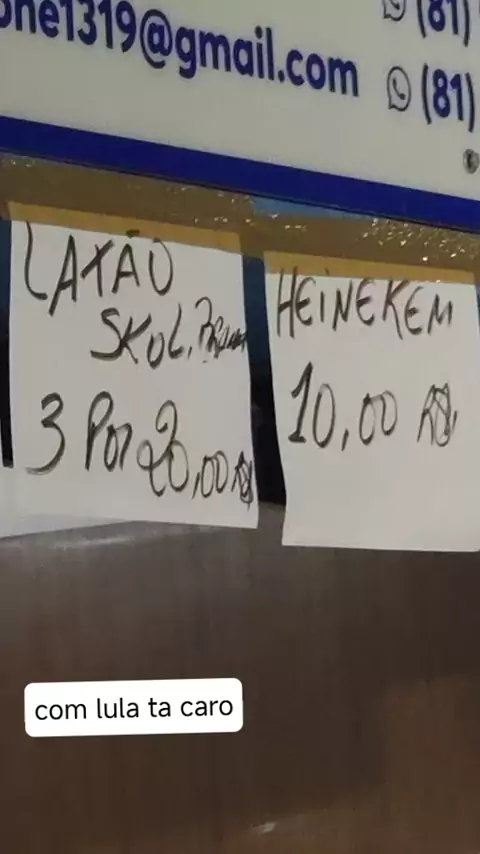 one1319@gmail.com
(81)
(81)
LATÃO
SKOL.
3 POR 20,00 R$
HEINEKEM
10,00 R$
com lula ta caro